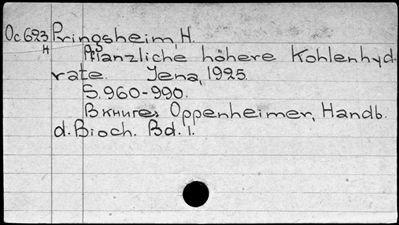 Oc623 Pringsheim, H.
H
Pflanzliche höhere Kohlenhyd-
rate. Jena, 1925
S. 960-990.
В книге: Oppenheimer, Handb.
d. Bioch. Bd. 1.